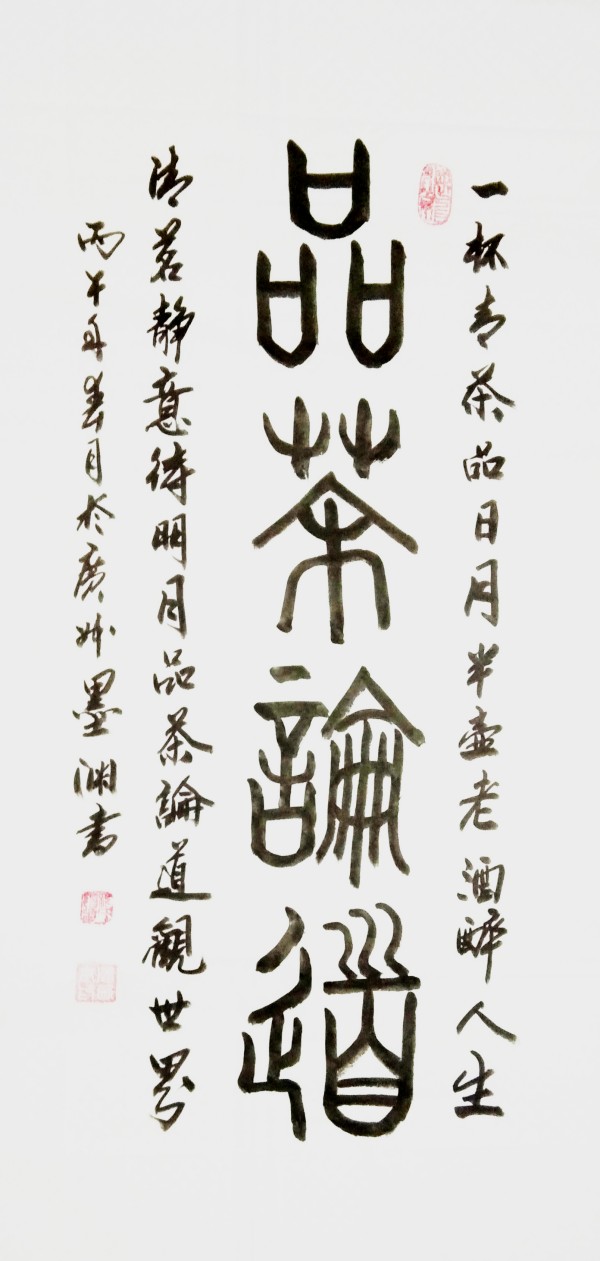 一杯青茶品日月半壺老酒醉人生
品茶論道
清茗静意待明月品茶論道觀世界
丙午年春月於廣州墨渊書